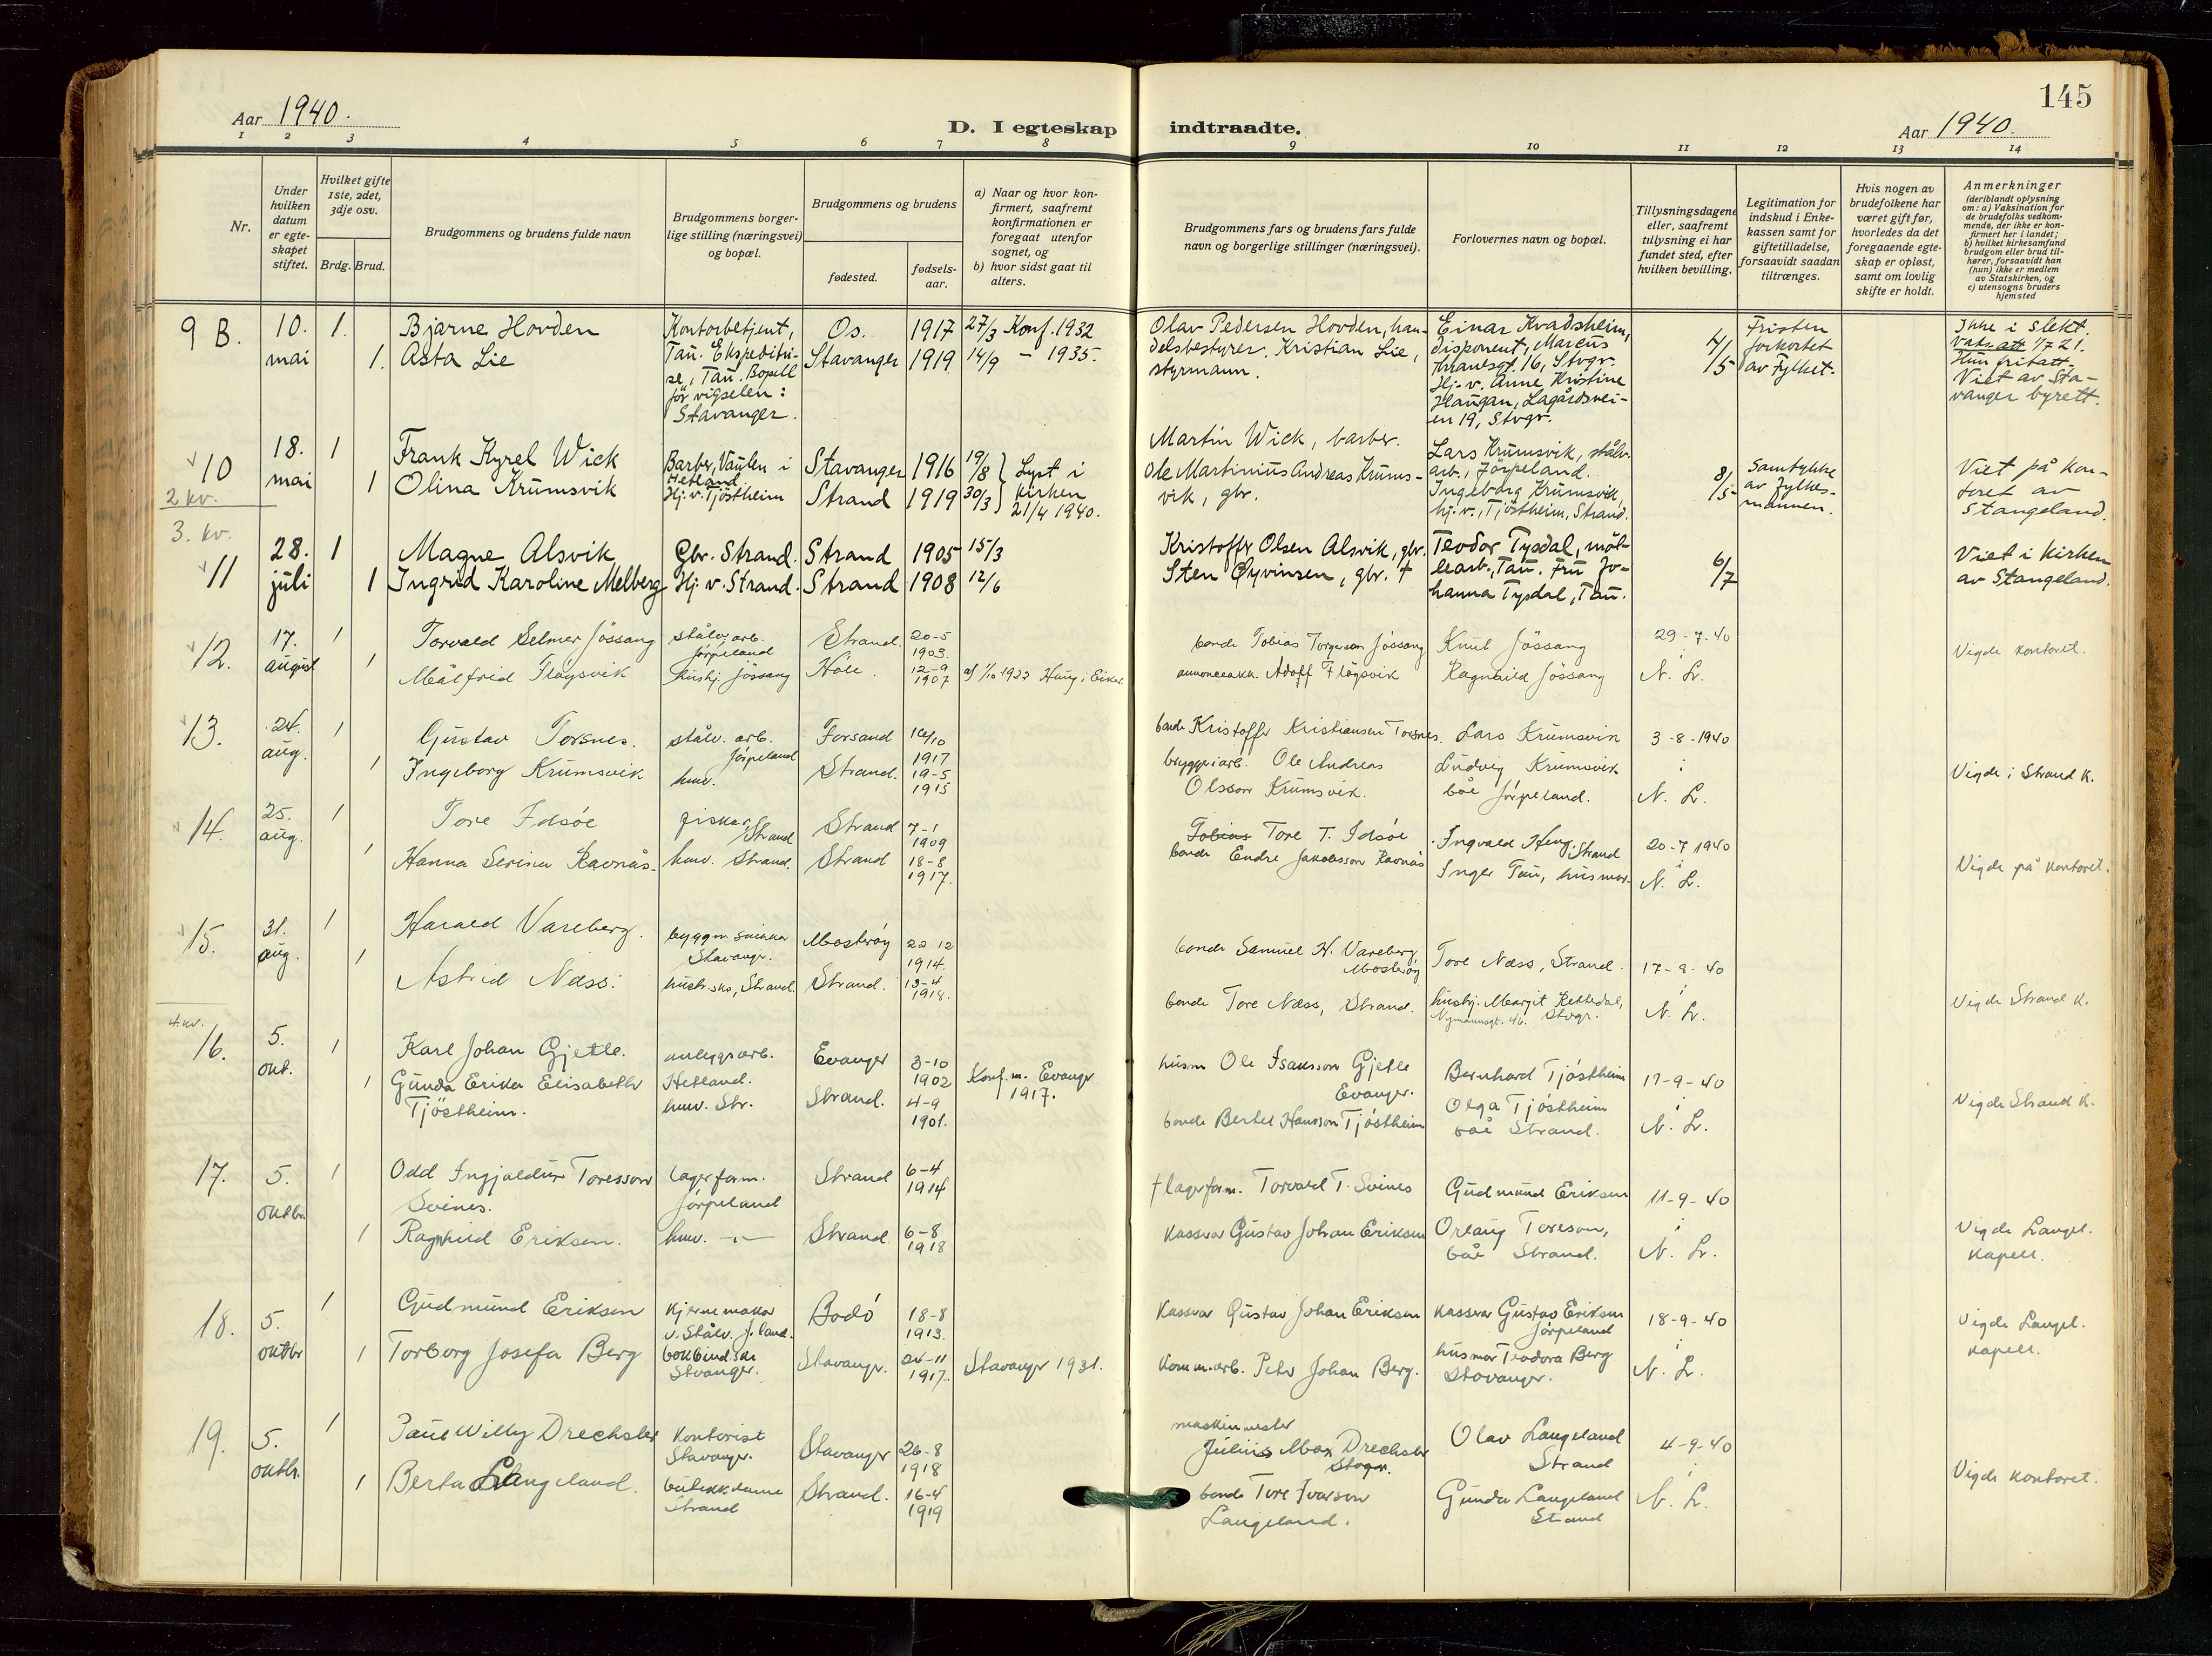 145
Aar 1940.
D. I egteskap indtraadte.
Aar 1940.
1 2 3 4 5 6 7 8 9 10 11 12 13 14
Nr.
Under hvilken datum er egteskapet stiftet.
Hvilket gifte 1ste, 2det, 3dje osv.
Brdg. Brud.
Brudgommens og brudens fulde navn
Brudgommens borgerlige stilling (næringsvei) og bopæl.
Brudgommens og brudens
fødested.
fødselsaar.
a) Naar og hvor konfirmert, saafremt konfirmationen er foregaat utenfor sognet, og
b) hvor sidst gaat til alters.
Brudgommens fars og brudens fars fulde navn og borgerlige stillinger (næringsvei).
Forlovernes navn og bopæl.
Tillysningsdagene eller, saafremt tillysning ei har fundet sted, efter hvilken bevilling.
Legitimation for indskud i Enkekassen samt for giftetilladelse, forsaavidt saadan tiltrænges.
Hvis nogen av brudefolkene har været gift før, hvorledes da det foregaaende egteskap er opløst, samt om lovlig skifte er holdt.
Anmerkninger
(deriblandt oplysning om: a) Vaksination for de brudefolks vedkommende, der ikke er konfirmert her i landet;
b) hvilket kirkesamfund brudgom eller brud tilhører, forsaavidt han (hun) ikke er medlem av Statskirken, og
c) utensogns bruders hjemsted
9 B. 10. mai 1. Bjarne Hovden
1. Asta Lie
Kontorbetjent,
Tau. Ekspeditri-
se, Tau. Bopell
før vigselen:
Stavanger.
Os. 1917 27/3 Konf. 1932
Stavanger 1919 14/9 – 1935.
Olav Pedersen Hovden, han-
delsbestyrer. Kristian Lie,
styrmann.
Einar Kvadsheim,
disponent, Marcus
Thranesgt. 16, Stvgr.
Hj. v. Anne Kristine
Haugan, Lagårdsvei-
en 19, Stvgr.
4/5
Fristen
forkortet
av Fylket.
Ikke i slekt.
Vaks.att 1/7 21.
Hun fritatt.
Viet av Sta-
vanger byrett.
10 18. mai 1 Frank Kyrel Wick
1 Olina Krumsvik
2 kv.
Barber, Vaulen i
Hetland
Hj. v. Tjöstheim
Stavanger 1916 19/8
Strand 1919 30/3
Lyst i
kirken
21/4 1940.
Martin Wick, barber.
Ole Martinius Andreas Krums-
vik, gbr.
Lars Krumsvik, stålv.
arb., Jörpeland.
Ingeborg Krumsvik,
hj. v., Tjöstheim, Strand.
8/5
Samtykke
av Fylkes-
mannen.
Viet på kon-
toret av
Stangeland.
3. kv.
11 28. juli 1 Magne Alsvik
1 Ingrid Karoline Melberg
Gbr. Strand. Strand 1905 15/3
Hj. v. Strand. Strand 1908 12/6
Kristoffer Olsen Alsvik, gbr.
Sten Öyvinsen, gbr. †
Teodor Tysdal, möb-
learb., Tau. Fru Jo-
hanna Tysdal, Tau.
6/7
Viet i kirken
av Stangeland.
12. 17. august 1 Torvald Selmer Jössang
1 Målfrid Flögsvik
stålv. arb.
Jörpeland
hushj. Jössang
Strand. 20-5 1903.
Hole. 12-9 1907
a) 1/10 1922 Haug i Eiker
bonde Tobias Torgersen Jössang
Adolf Flögsvik
Knut Jössang
Ragnhild Jössang
29-7-40
N. L.
Vigde kontoret.
13. 24. aug. 1 Gustav Torsnes.
1 Ingeborg Krumsvik
stålv. arb.
Jörpeland
husv.
Forsand 14/10 1917
Strand. 19-5 1915
bonde Kristoffer Kristiansen Torsnes.
bryggeriarb. Ole Andreas
Olsson Krumsvik.
Lars Krumsvik
Ludvig Krumsvik
båe Jörpeland.
3-8-1940
N. L.
Vigde i Strand k.
14. 25. aug. 1 Tore Idsöe
1 Hanna Serina Ravnås.
fiskar, Strand
husv. Strand.
Strand 7-1 1909
Strand 18-8 1917.
Tobias Tore T. Idsöe
bonde Endre Jakobsson Ravnås
Ingvald Heng. Strand
Inger Tau, husmor.
20-7 1940
N. L.
Vigde på kontoret.
15. 31. aug. 1 Harald Vareberg.
1 Astrid Næss.
byggn. snikkar
Stavanger.
Strand.
Mosteröy 22 12 1914.
Strand. 13-4 1918.
bonde Samuel H. Vareberg,
Mosteröy
bonde Tore Næss, Strand.
Tore Næss, Strand.
hushj. Margit Kettedal,
Nymannsgt. 46. Stvgr.
17-8-40
N. L.
Vigde Strand k.
4. kv.
16. 5. okt. 1 Karl Johan Gjetle.
1 Gunda Erika Elisabeth
Tjöstheim.
anleggsarb.
Hetland.
husv. Str.
Evanger 3-10 1902
Strand. 4-9 1901.
Konf. m. Evanger
1917.
husm Ole Isaksson Gjetle
Evanger.
bonde Bertel Hansson Tjöstheim
Bernhard Tjöstheim
Olga Tjöstheim
båe Strand.
17-9-40
N. L.
Vigde Strand k.
17. 5. oktbr. 1 Odd Ingjaldur Toresson
Svines.
1 Ragnhild Eriksen.
lagerform.
Jörpeland
husv. –"–
Strand 6-4 1914
Strand 6-8 1918
† lagerform. Torvald T. Svines
kasserer Gustav Johan Eriksen
Gudmund Eriksen
Orlaug Toreson,
båe Strand.
11-9-40
N. L.
Vigde Langel.
kapell.
18. 5. oktbr 1 Gudmund Eriksen
1 Torborg Josefa Berg
kjernemakar
v. Stålv. J.land.
bokbind.ske
Stvanger.
Bodö 18-8 1913.
Stavanger. 24-11 1917.
Stavanger 1931.
kasserer Gustav Johan Eriksen
Komm.arb. Peter Johan Berg.
kasserer Gustav Eriksen
Jörpeland
husmor Teodora Berg
Stavanger.
18-9-40
N. L.
Vigde Langel.
kapell.
19. 5. oktbr. 1 Paul Willy Drechsler
1 Berta Langeland.
kontorist
Stavanger.
butikkdame
Strand
Stavanger 26-8 1918
Strand. 16-4 1919
maskinmester
Julius Max Drechsler
Stvgr.
bonde Tore Ivarson
Langeland.
Olav Langeland
Strand
Gunda Langeland
Strand
4-9-40
N. L.
Vigde kontoret.